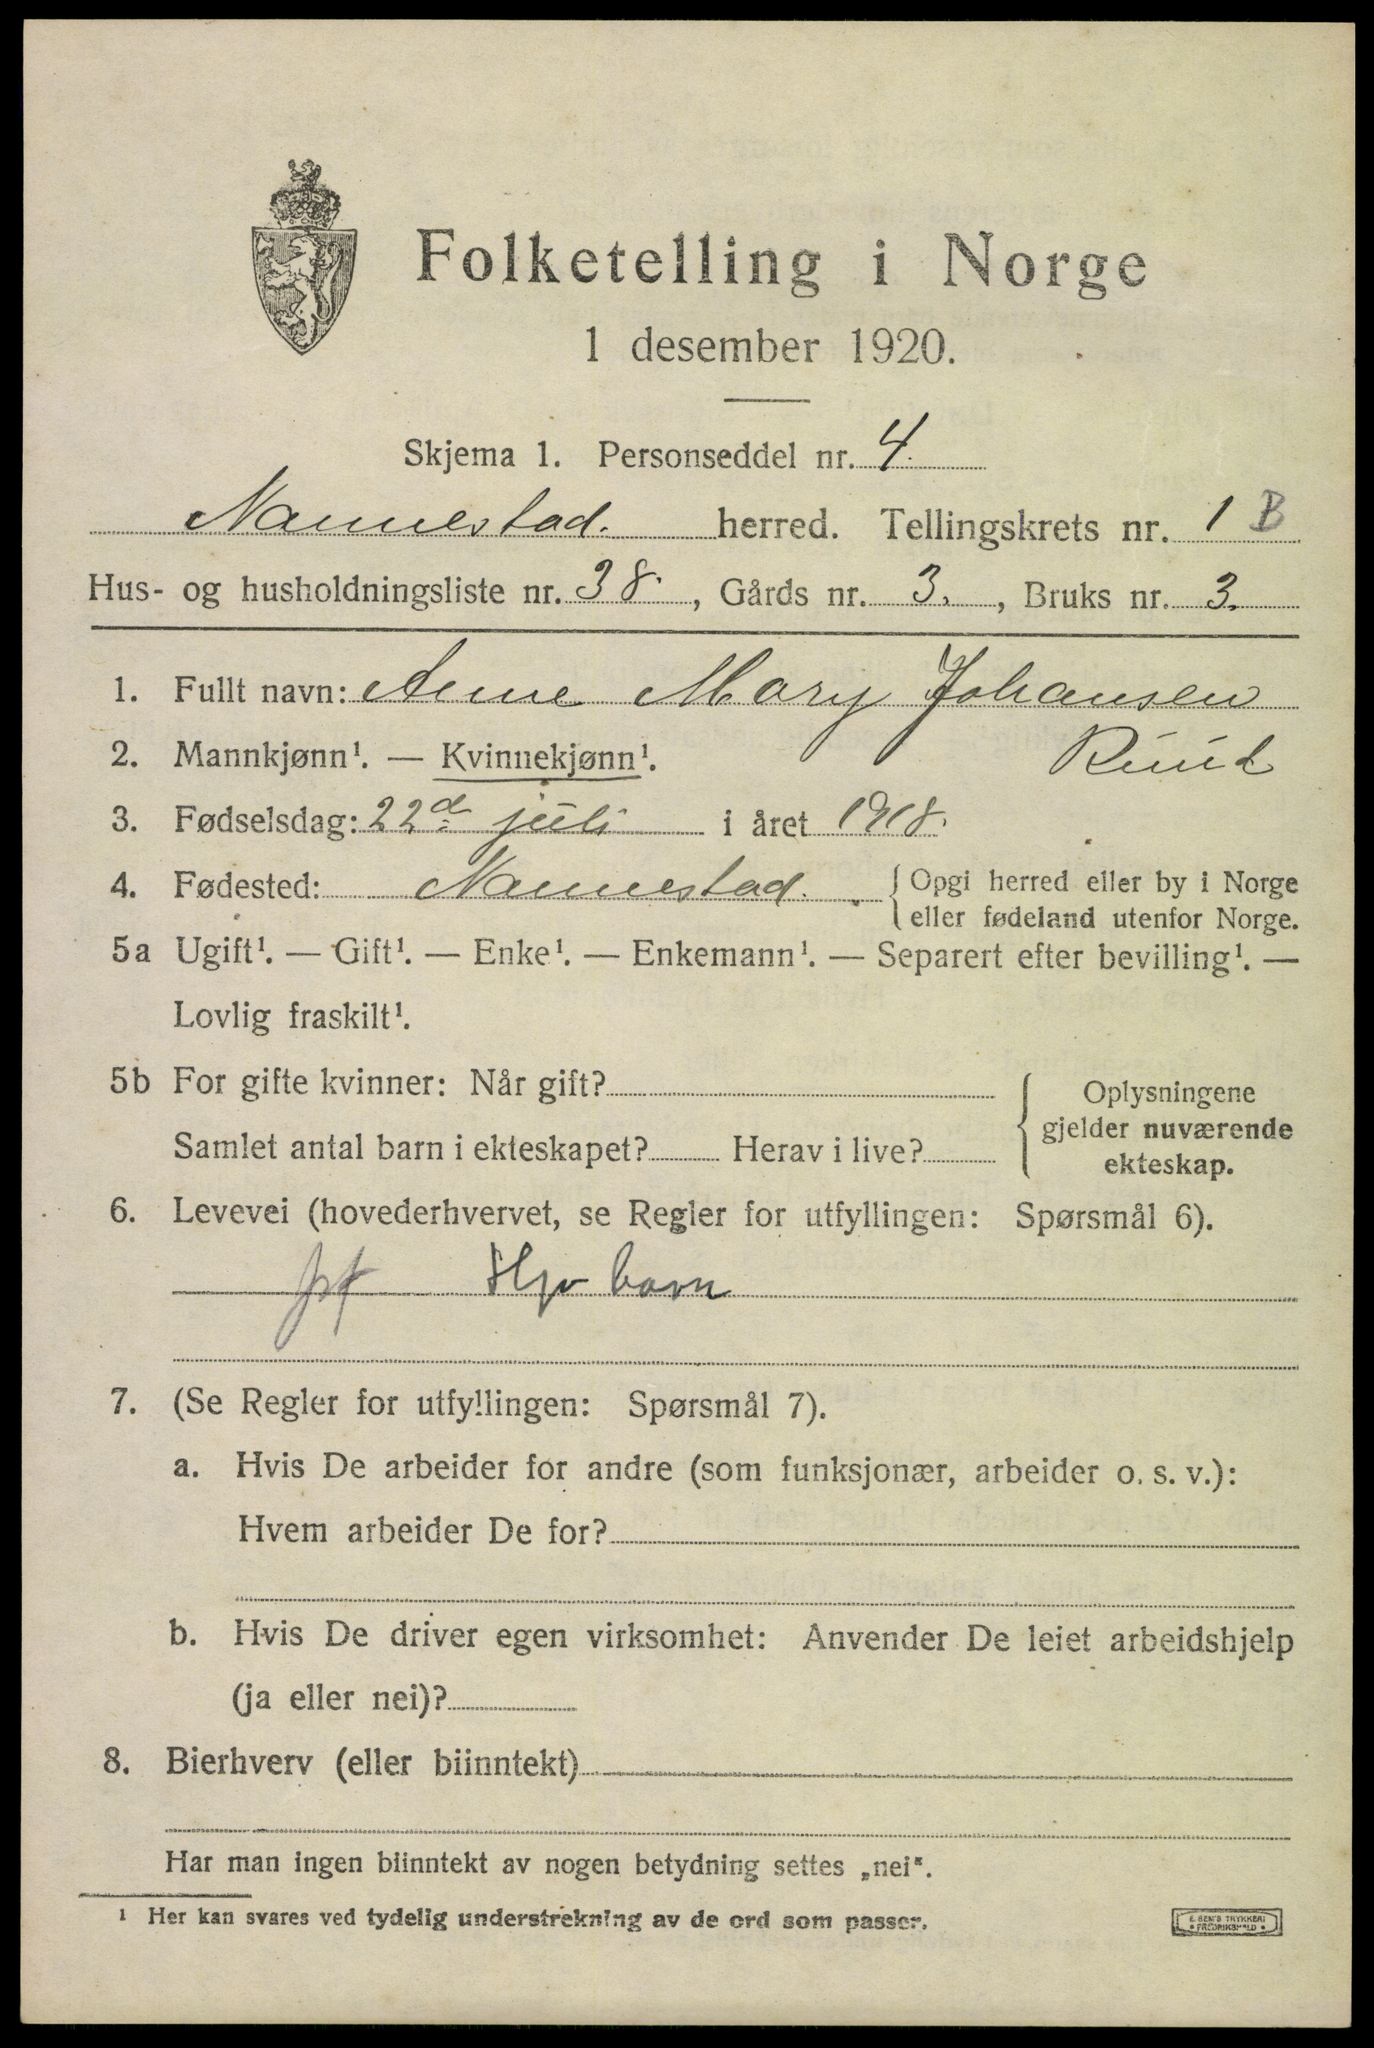 Folketelling i Norge
1 desember 1920.
Skjema 1. Personseddel nr. 4.
Nannestad. herred. Tellingskrets nr. 1 B
Hus- og husholdningsliste nr. 38., Gårds nr. 3., Bruks nr. 3.
1. Fullt navn: Anne Mary Johansen
Ruud
2. Mannkjønn¹. — Kvinnekjønn¹.
3. Fødselsdag: 22d juli i året 1918.
4. Fødested: Nannestad. { Opgi herred eller by i Norge
eller fødeland utenfor Norge.
5a Ugift¹. — Gift¹. — Enke¹. — Enkemann¹. — Separert efter bevilling¹. —
Lovlig fraskilt¹.
5b For gifte kvinner: Når gift?
Samlet antal barn i ekteskapet? Herav i live?
{ Oplysningene
gjelder nuværende
ekteskap.
6. Levevei (hovederhvervet, se Regler for utfyllingen: Spørsmål 6).
barn
7. (Se Regler for utfyllingen: Spørsmål 7).
a. Hvis De arbeider for andre (som funksjonær, arbeider o. s. v.):
Hvem arbeider De for?
b. Hvis De driver egen virksomhet: Anvender De leiet arbeidshjelp
(ja eller nei)?
8. Bierhverv (eller biinntekt)
Har man ingen biinntekt av nogen betydning settes „nei“.
¹ Her kan svares ved tydelig understrekning av de ord som passer.
E. SEM'S TRYKKERI
• FREDRIKSHALD •